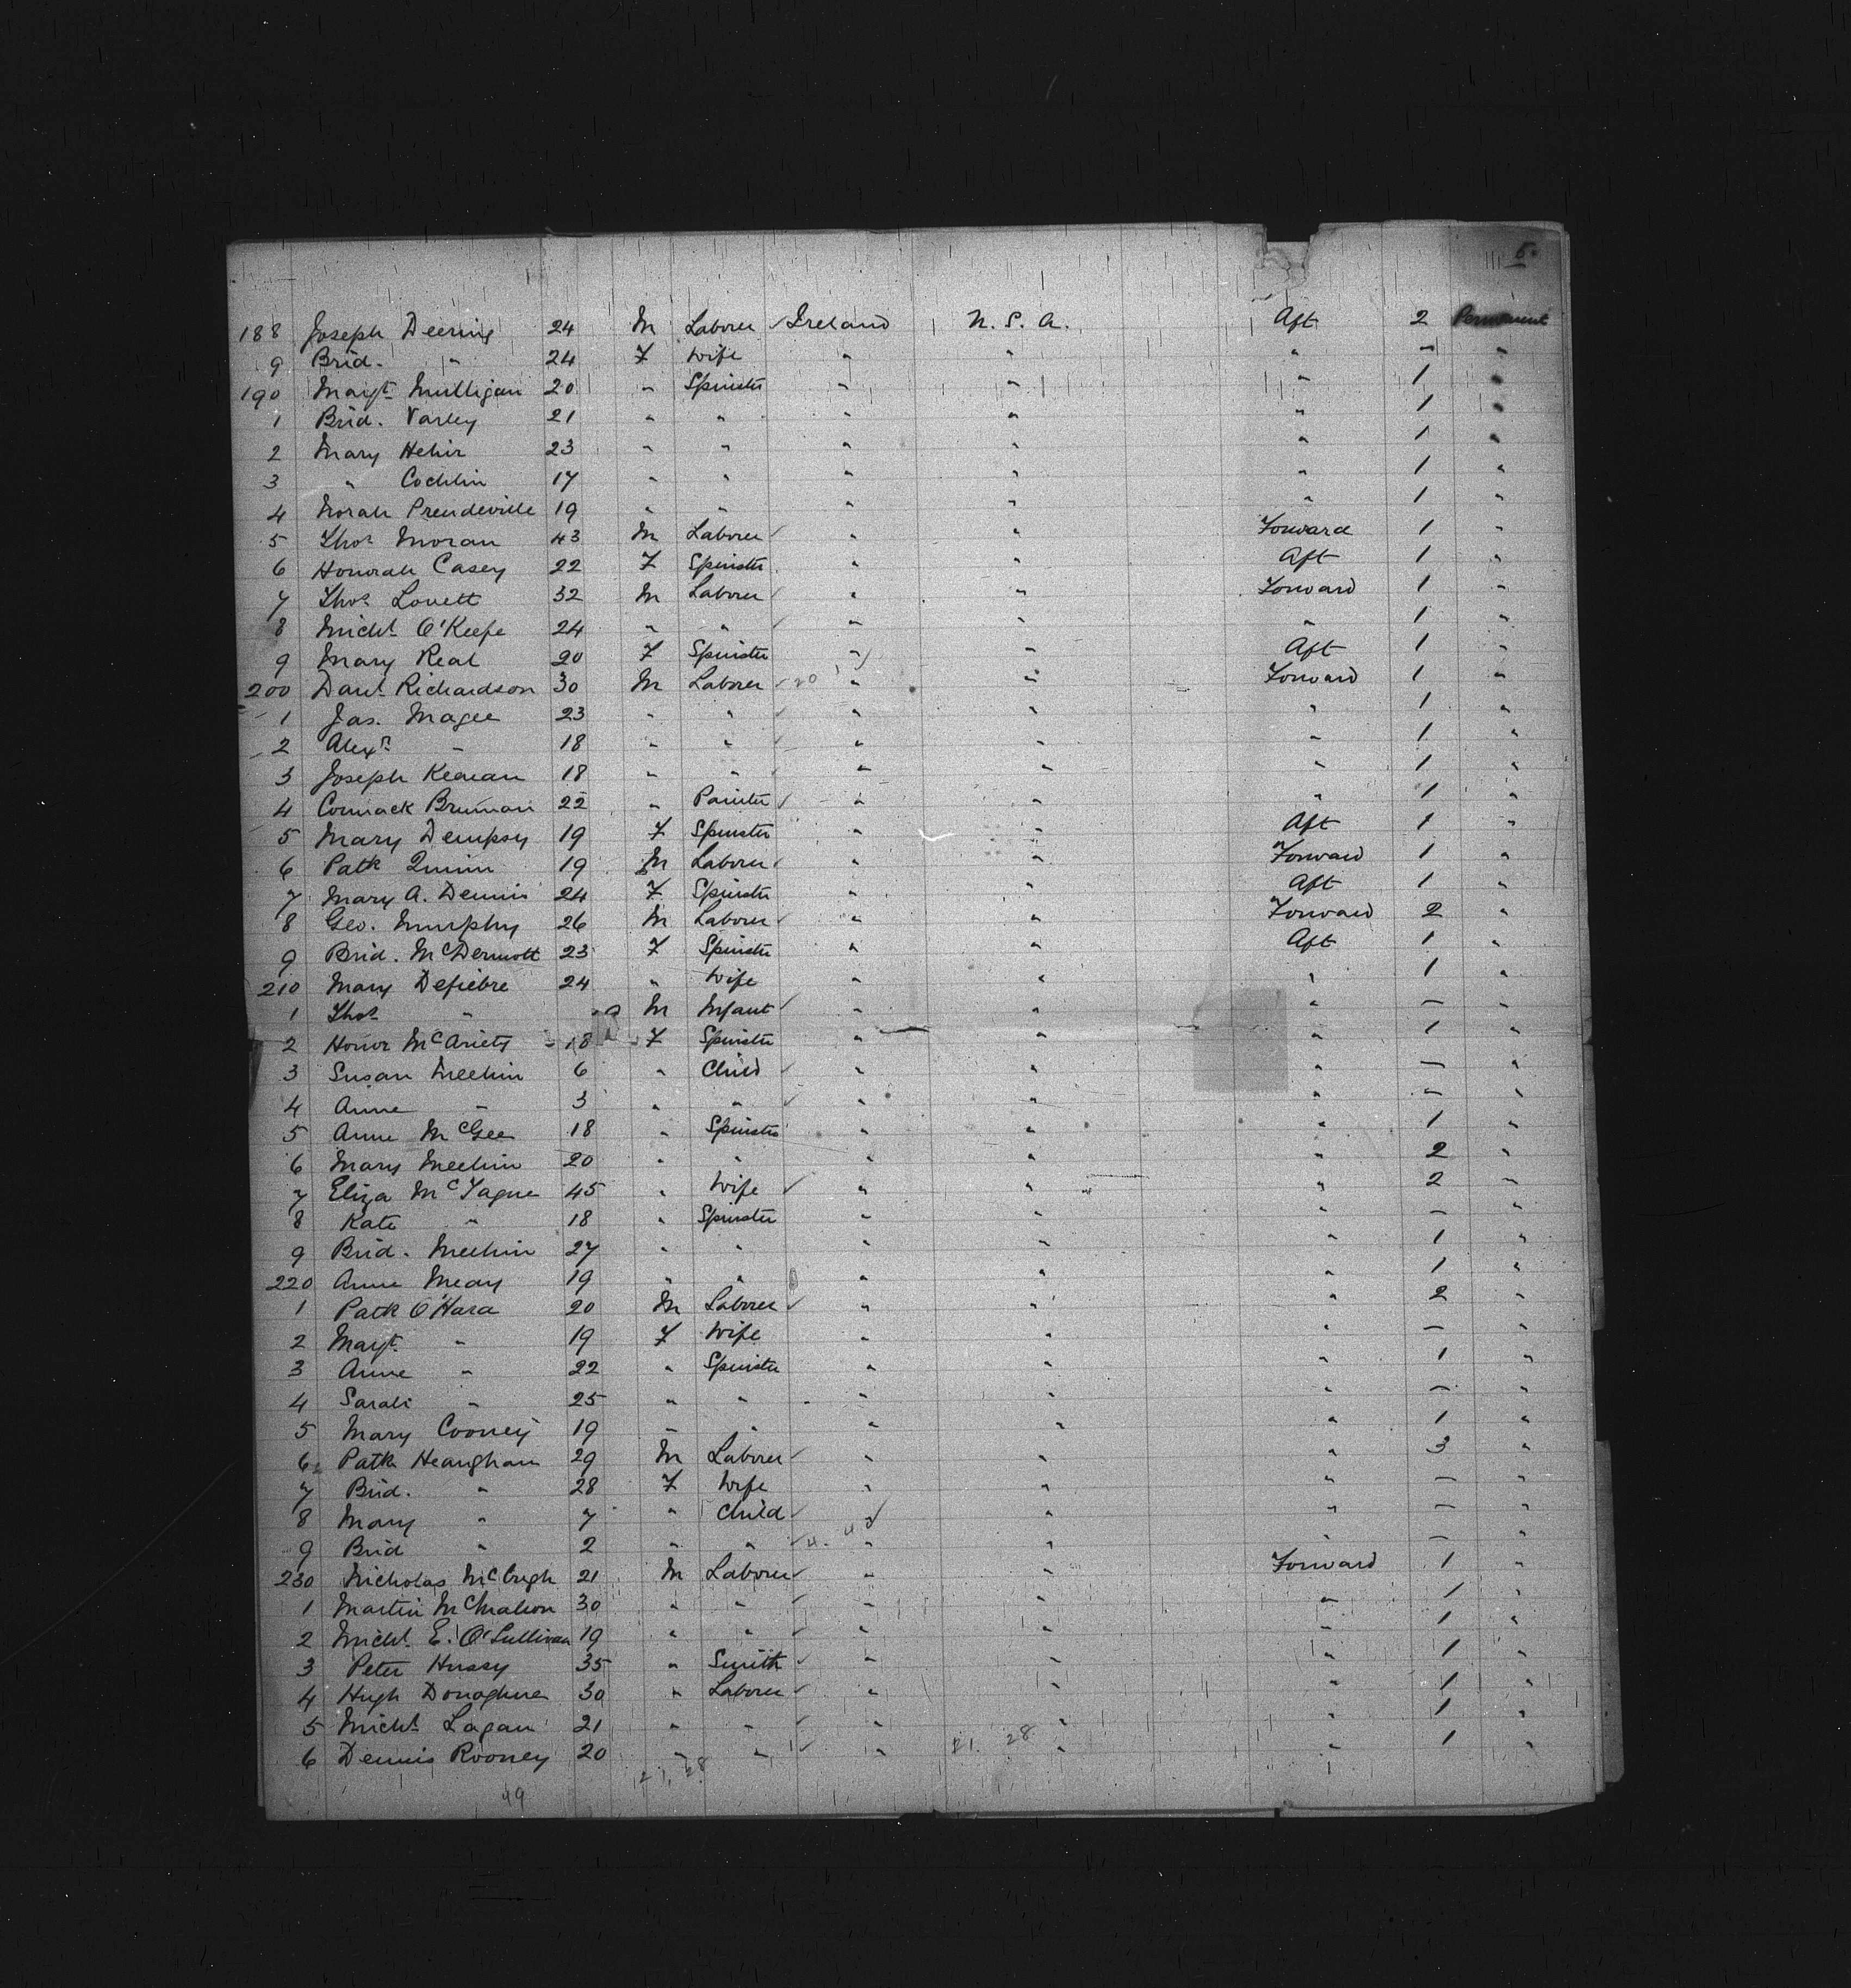 5.
188 Joseph Deering 24 M Laborer ✓ Ireland U. S. A. Aft 2 Permanent
9 Brid. " 24 F Wife " " " — "
190 Margt Mulligan 20 " Spinster " " " 1 "
1 Brid. Varley 21 " " " " " 1 "
2 Mary Hehir 23 " " " " " 1 "
3 " Cochlin 17 " " " " " 1 "
4 Norah Prendeville 19 " " " " " 1 "
5 Thos Moran 43 M Laborer ✓ " " Forward 1 "
6 Honorah Casey 22 F Spinster " " Aft 1 "
7 Thos Lovett 32 M Laborer ✓ " " Forward 1 "
8 Michl O'Keefe 24 " " ✓ " " " 1 "
9 Mary Real 20 F Spinster " " Aft 1 "
200 Danl Richardson 30 M Laborer ✓ 20 " " Forward 1 "
1 Jas. Magee 23 " " ✓ " " " 1 "
2 Alexr " 18 " " ✓ " " " 1 "
3 Joseph Kearan 18 " " ✓ " " " 1 "
4 Cormack Brennan 22 " Painter ✓ " " " 1 "
5 Mary Dempsy 19 F Spinster " " Aft 1 "
6 Patk Quinn 19 M Laborer ✓ " " Forward 1 "
7 Mary A. Dennis 24 F Spinster " " Aft 1 "
8 Geo. Murphy 26 M Laborer ✓ " " Forward 2 "
9 Brid. McDermott 23 F Spinster " " Aft 1 "
210 Mary Defiebre 24 " Wife " " " 1 "
1 Thos " M Infant ✓ " " " —
2 Honor 18 F Spinster " " " 1 "
3 Susan Meehin 6 " Child ✓ " " " — "
4 Anne " 3 " " ✓ " " " — "
5 Anne McGee 18 " Spinster " " " 1 "
6 Mary Meehin 20 " " " " " 2 "
7 Eliza McTague 45 " Wife ✓ " " " 2 "
8 Kate " 18 " Spinster " " " — "
9 Brid. Meehin 27 " " " " " 1 "
220 Anne 19 " " " " " 1 "
1 Patk O'Hara 20 M Laborer ✓ " " " 2 "
2 Margt " 19 F Wife " " " — "
3 Anne " 22 " Spinster " " " 1 "
4 Sarah " 25 " " " " " — "
5 Mary Cooney 19 " " " " " 1 "
6 Patk Heanghan 29 M Laborer ✓ " " " 3 "
7 Brid. " 28 F Wife " " " — "
8 Mary " 7 " Child ✓ " " " — "
9 Brid " 2 " " ✓ " " " —
230 Nicholas McCugh 21 M Laborer ✓ " " Forward 1 "
1 Martin McMahon 30 " " ✓ " " " 1 "
2 Michl E. O'Sullivan 19 " " ✓ " " " 1 "
3 Peter Hussy 35 " Smith ✓ " " " 1 "
4 Hugh Donaghue 30 " Laborer ✓ " " " 1 "
5 Michl Lagan 21 " " ✓ " " " 1 "
6 Dennis Rooney 20 " " ✓ " " " 1 "
21. 28
21, 28
49